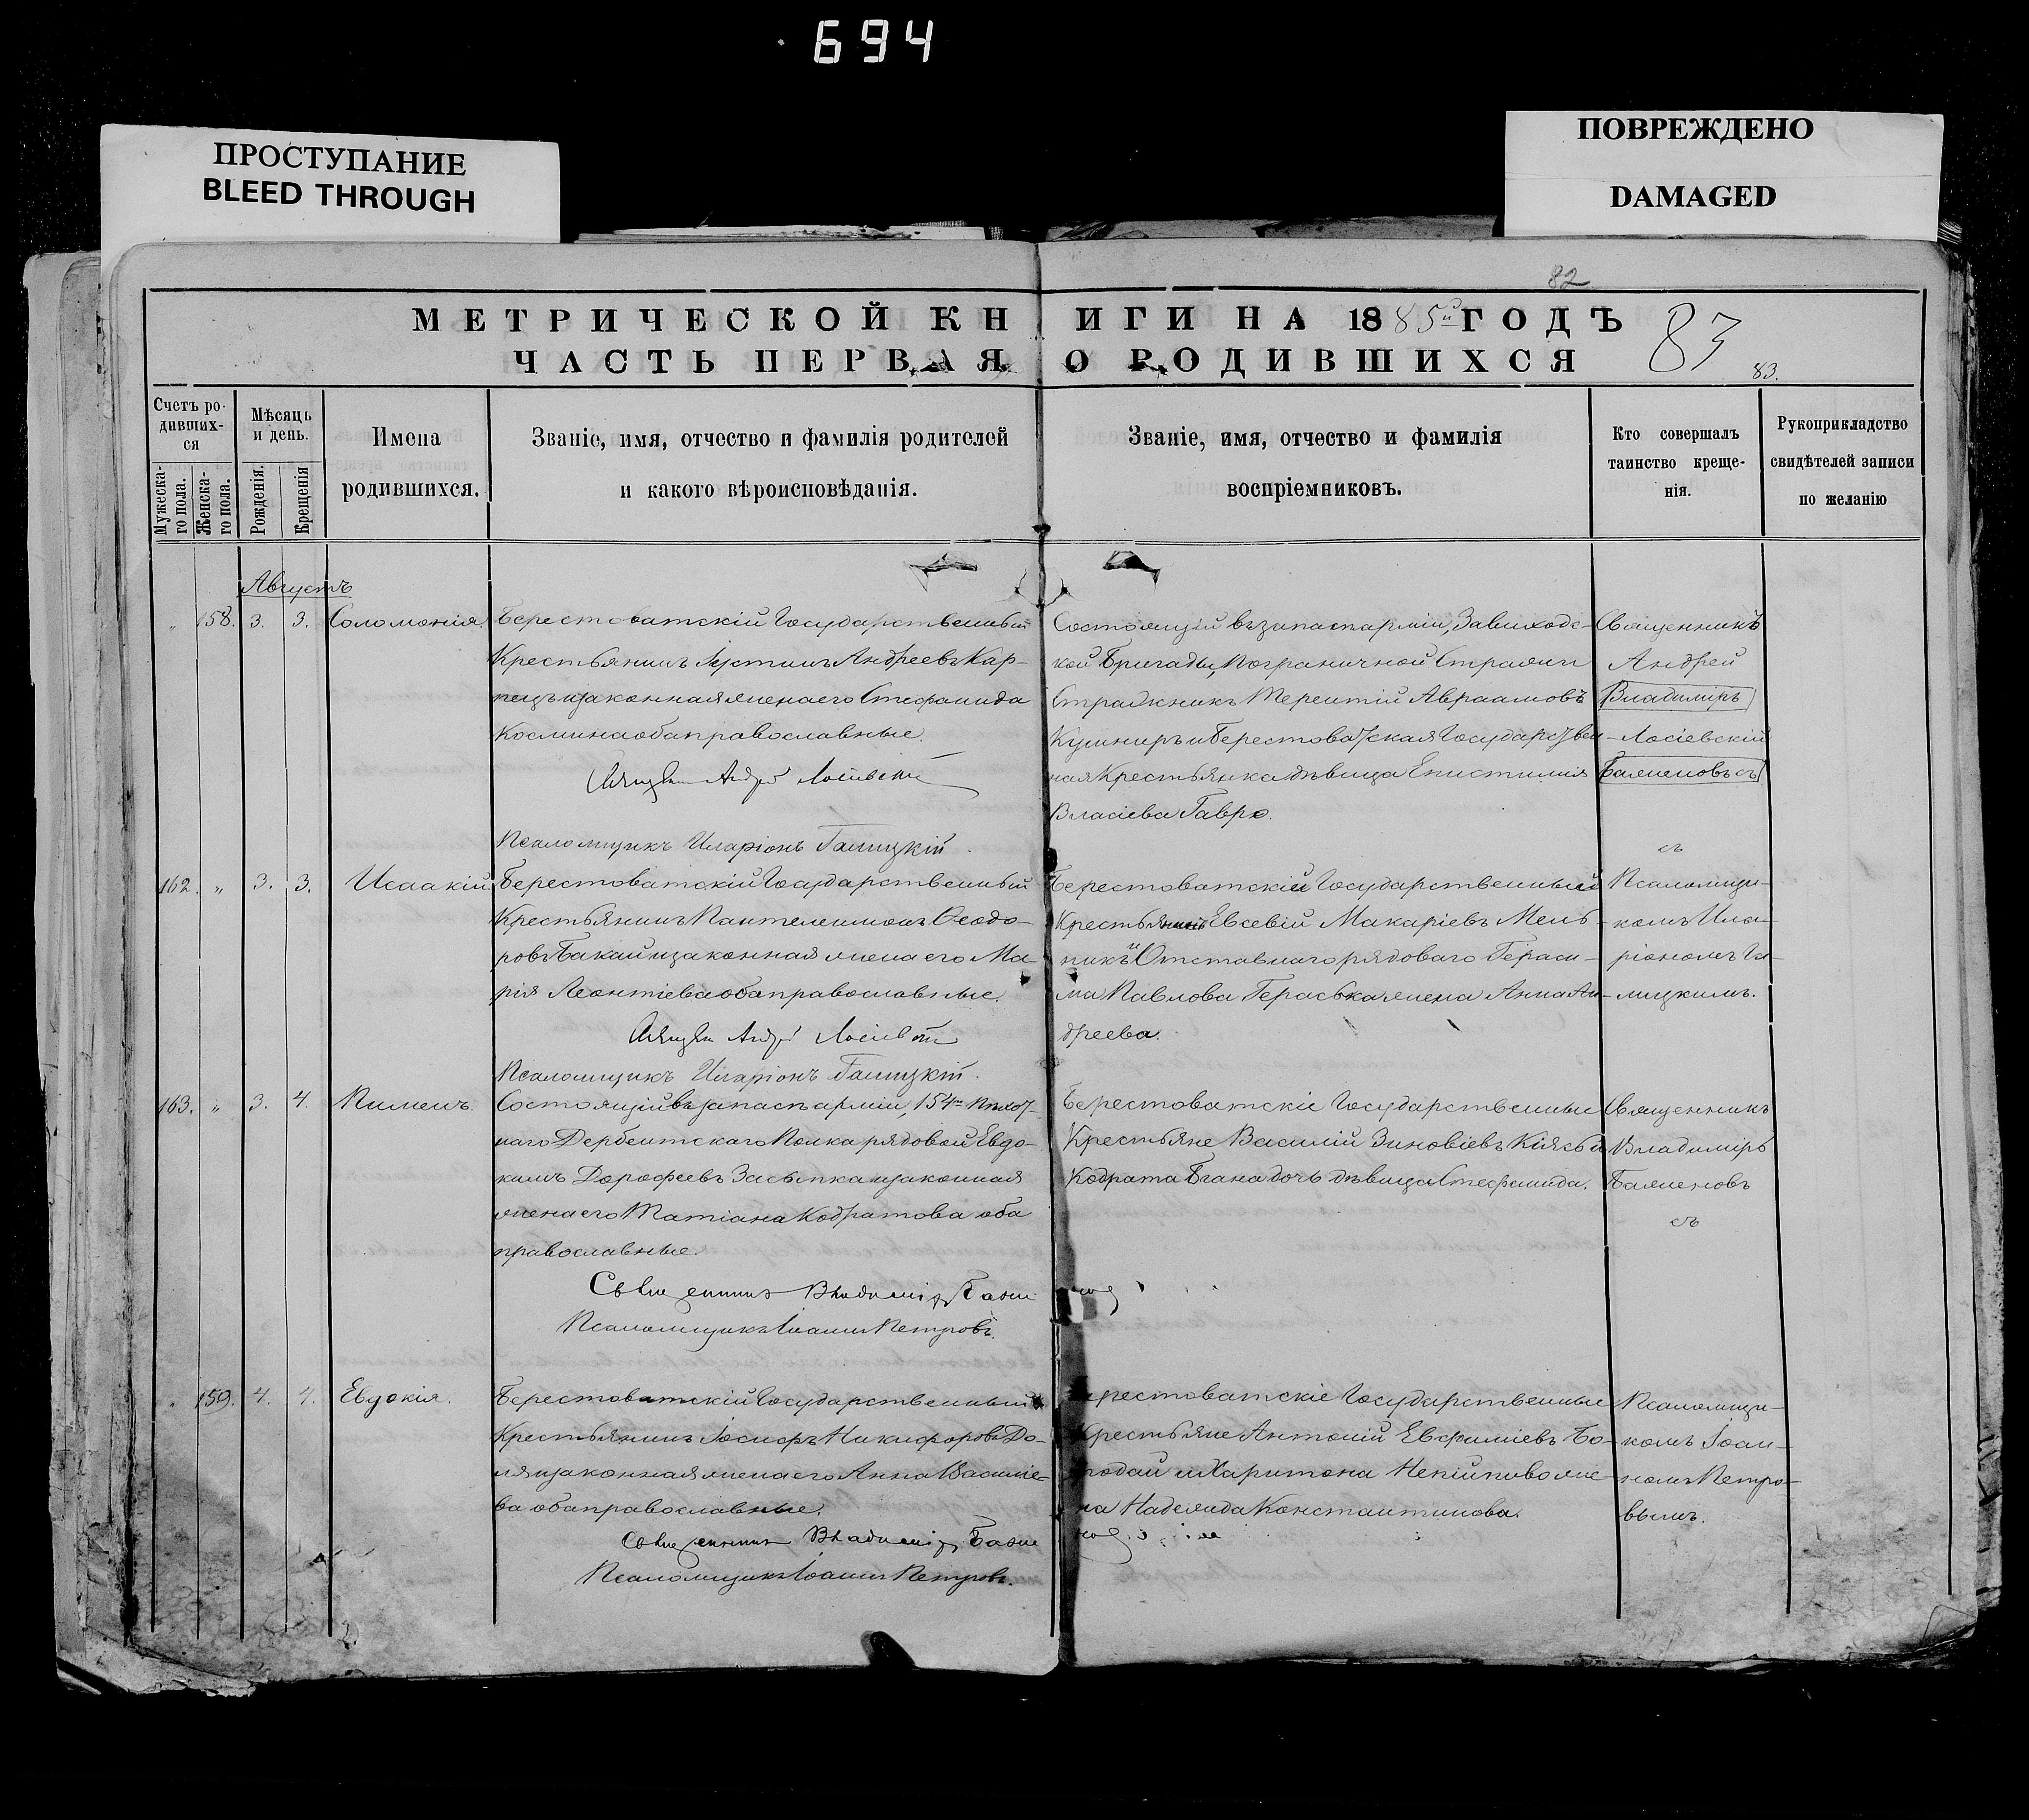 694
ПРОСТУПАНИЕ
BLEED THROUGH
ПОВРЕЖДЕНО
DAMAGED
82
МЕТРИЧЕСКОЙ КНИГИ НА 1885й ГОДЪ
83
ЧАСТЬ ПЕРВАЯ О РОДИВШИХСЯ
83.
Счетъ ро-
дивших-
ся
Мужеска-
го пола.
Женска-
го пола.
Мѣсяць
и день.
Рожденія.
Крещенія
Имена
родившихся.
Званіе, имя, отчество и фамилія родителей
и какого вѣроисповѣданія.
Званіе, имя, отчество и фамилія
воспріемниковъ.
Кто совершалъ
таинство креще-
нія.
Рукоприкладство
свидѣтелей записи
по желанію
Августъ
„ 158. 3. 3. Соломонія.
Берестоватскій Государственный
Крестьянинъ Іустинъ Андреевъ Кар-
пецъ и законная жена его Стефанида
Космина оба православные.
Андрей Лосіевскій
Псаломщикъ Иларіонъ Галицкій.
Состоящій въ запасѣ арміи, Завиходс-
кой Бригады, Пограничной Стражи
Стражникъ Терентій Авраамовъ
Кушниръ и Берестоватская Государствен-
ная Крестьянка дѣвица Епистимія
Власіева Гавро.
Священникъ
Андрей
Владиміръ
Лосіевскій
Баженовъ съ
съ
162. „ 3. 3. Исаакій
Берестоватскій Государственный
Крестьянинъ Пантелеимонъ Ѳеодо-
ровъ Бакай и законная жена его Ма-
рія Леонтіева оба православные.
Андрей Лосіевскій
Псаломщикъ Иларіонъ Галицкій.
Берестоватскій Государственный
Крестьянинъ Евсевій Макаріевъ Мель-
никъ и Отставнаго рядоваго Гераси-
ма Павлова Гераська жена Анна Ан-
дреева.
Псаломщи-
комъ Ила-
ріономъ Га-
лицкимъ.
163. „ 3. 4. Пименъ.
Состоящій въ запасѣ арміи, 154го Пѣхот-
наго Дербентскаго Полка рядовой Евдо-
кимъ Дорофеевъ Засыпка и законная
жена его Татіана Кодратова оба
православные.
Священникъ Владиміръ Баженовъ
Псаломщикъ Іоаннъ Петровъ.
Берестоватскіе Государственные
Крестьяне Василій Зиновіевъ Кіясь и
Кодрата Бгана дочь дѣвица Стефанида.
Священникъ
Владиміръ
Баженовъ
съ
„ 159. 4. 4. Евдокія.
Берестоватскій Государственный
Крестьянинъ Іосифъ Никифоровъ До-
ля и законная жена его Анна Василіе-
ва оба православные.
Священникъ Владиміръ Баженовъ
Псаломщикъ Іоаннъ Петровъ.
Берестоватскіе Государственные
Крестьяне Антоній Евфиміевъ
и Харитона Непійпиво же-
на Надежда Константинова.
Псаломщи-
комъ Іоан-
номъ Петро-
вымъ.